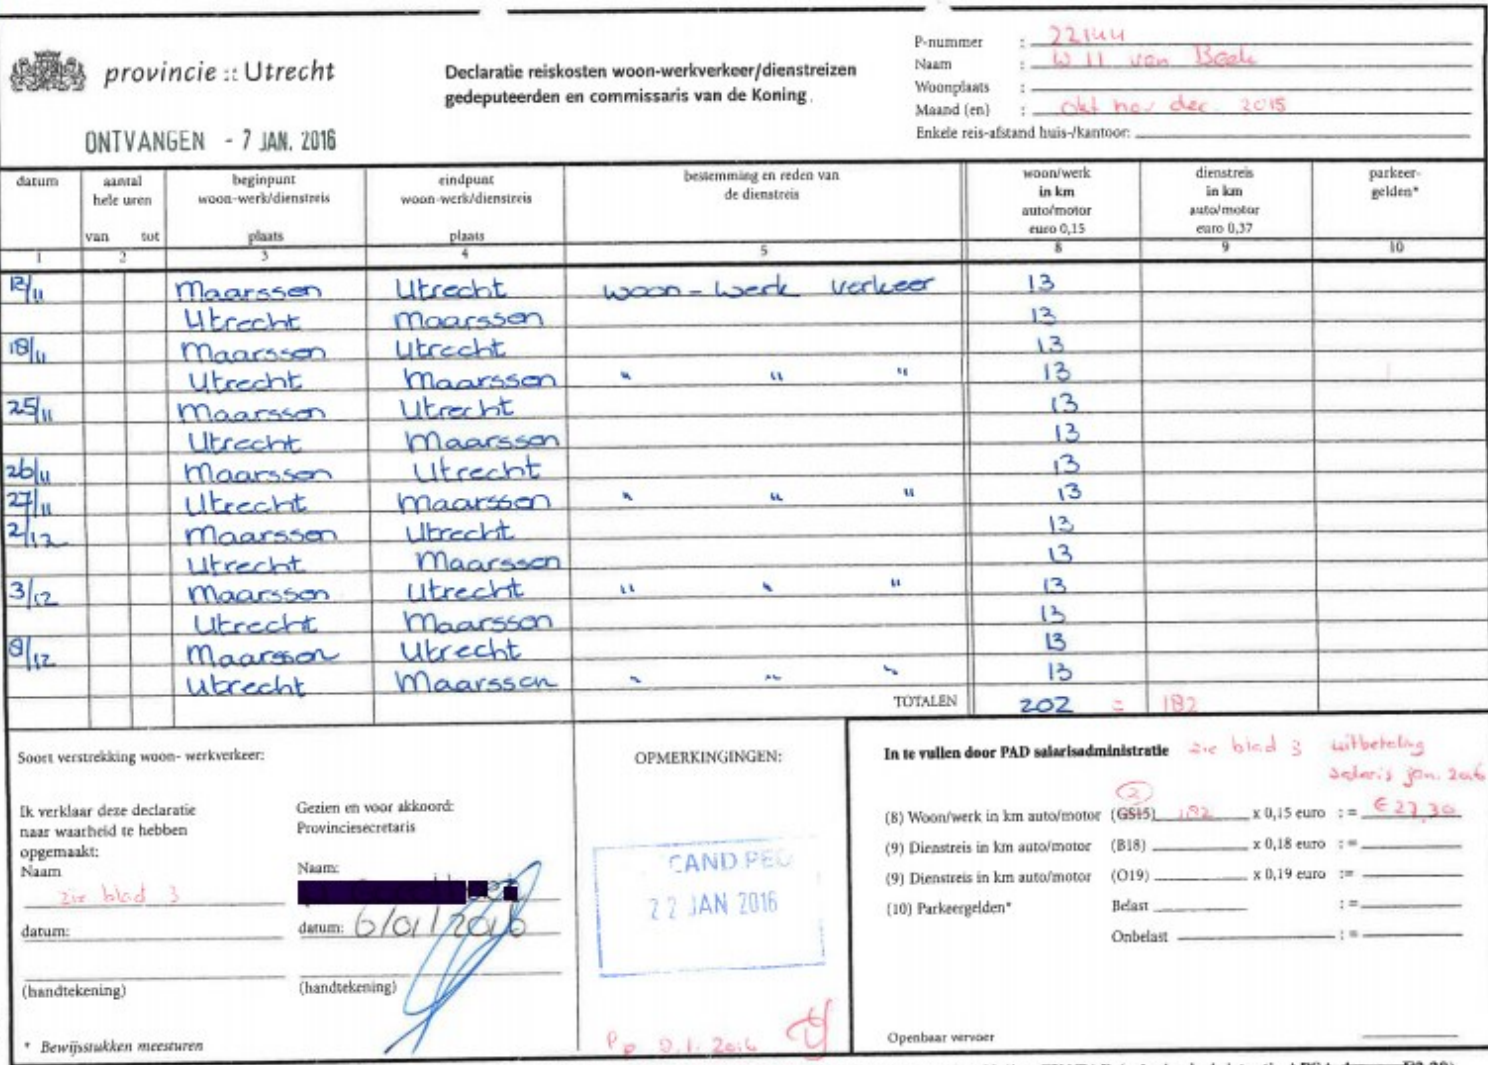 provincie :: Utrecht
ONTVANGEN - 7 JAN. 2016
Declaratie reiskosten woon-werkverkeer/dienstreizen
gedeputeerden en commissaris van de Koning.
P-nummer : 22144
Naam : W 11 van Beek
Woonplaats :
Maand (en) : okt nov dec. 2015
Enkele reis-afstand huis-/kantoor:
datum aantal hele uren van tot beginpunt woon-werk/dienstreis plaats eindpunt woon-werk/dienstreis plaats bestemming en reden van de dienstreis woon/werk in km auto/motor euro 0,15 dienstreis in km auto/motor euro 0,37 parkeer-gelden*
1 2 3 4 5 8 9 10
12/11 Maarssen Utrecht woon-werk verkeer 13
Utrecht Maarssen 13
18/11 Maarssen Utrecht 13
Utrecht Maarssen " " " 13
25/11 Maarssen Utrecht 13
Utrecht Maarssen 13
26/11 Maarssen Utrecht 13
27/11 Utrecht Maarssen " " " 13
2/12 Maarssen Utrecht 13
Utrecht Maarssen 13
3/12 Maarssen Utrecht " " " 13
Utrecht Maarssen 13
8/12 Maarssen Utrecht 13
Utrecht Maarssen " " " 13
TOTALEN 202 = 182
Soort verstrekking woon- werkverkeer:
Ik verklaar deze declaratie
naar waarheid te hebben
opgemaakt:
Naam
zie blad 3
datum:
(handtekening)
* Bewijsstukken meesturen
Gezien en voor akkoord:
Provinciesecretaris
Naam:
datum: 6/01/2016
(handtekening)
OPMERKINGINGEN:
CAND.PEC
22 JAN 2016
In te vullen door PAD salarisadministratie zie blad 3 uitbetaling
salaris jan. 2016
2
(8) Woon/werk in km auto/motor (GS15) 182 x 0,15 euro : = € 27,30
(9) Dienstreis in km auto/motor (B18) x 0,18 euro : =
(9) Dienstreis in km auto/motor (O19) x 0,19 euro :=
(10) Parkeergelden* Belast : =
Onbelast : =
Openbaar vervoer